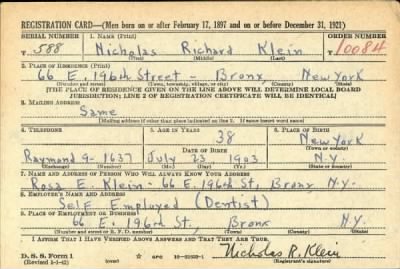 REGISTRATION CARD—(Men born on or after February 17, 1897 and on or before December 31, 1921)
SERIAL NUMBER 1. NAME (Print) ORDER NUMBER
T 588 Nicholas Richard Klein T 10084
(First) (Middle) (Last)
2. PLACE OF RESIDENCE (Print)
66 E. 196th Street - Bronx New York
(Number and street) (Town, township, village, or city) (County) (State)
[THE PLACE OF RESIDENCE GIVEN ON THE LINE ABOVE WILL DETERMINE LOCAL BOARD
JURISDICTION; LINE 2 OF REGISTRATION CERTIFICATE WILL BE IDENTICAL]
3. MAILING ADDRESS
Same
[Mailing address if other than place indicated on line 2. If same insert word same]
4. TELEPHONE 5. AGE IN YEARS 6. PLACE OF BIRTH
38 New York
DATE OF BIRTH (Town or county)
Raymond 9- 1637 July 23 1903 N.Y.
(Exchange) (Number) (Mo.) (Day) (Yr.) (State or country)
7. NAME AND ADDRESS OF PERSON WHO WILL ALWAYS KNOW YOUR ADDRESS
Rosa E. Klein - 66 E. 196th St, Bronx N.Y.
8. EMPLOYER'S NAME AND ADDRESS
Self Employed (Dentist)
9. PLACE OF EMPLOYMENT OR BUSINESS
66 E. 196th St, Bronx N.Y.
(Number and street or R. F. D. number) (Town) (County) (State)
I AFFIRM THAT I HAVE VERIFIED ABOVE ANSWERS AND THAT THEY ARE TRUE.
D. S. S. Form 1
(Revised 1-1-42) (over) Nicholas R. Klein
(Registrant's signature)